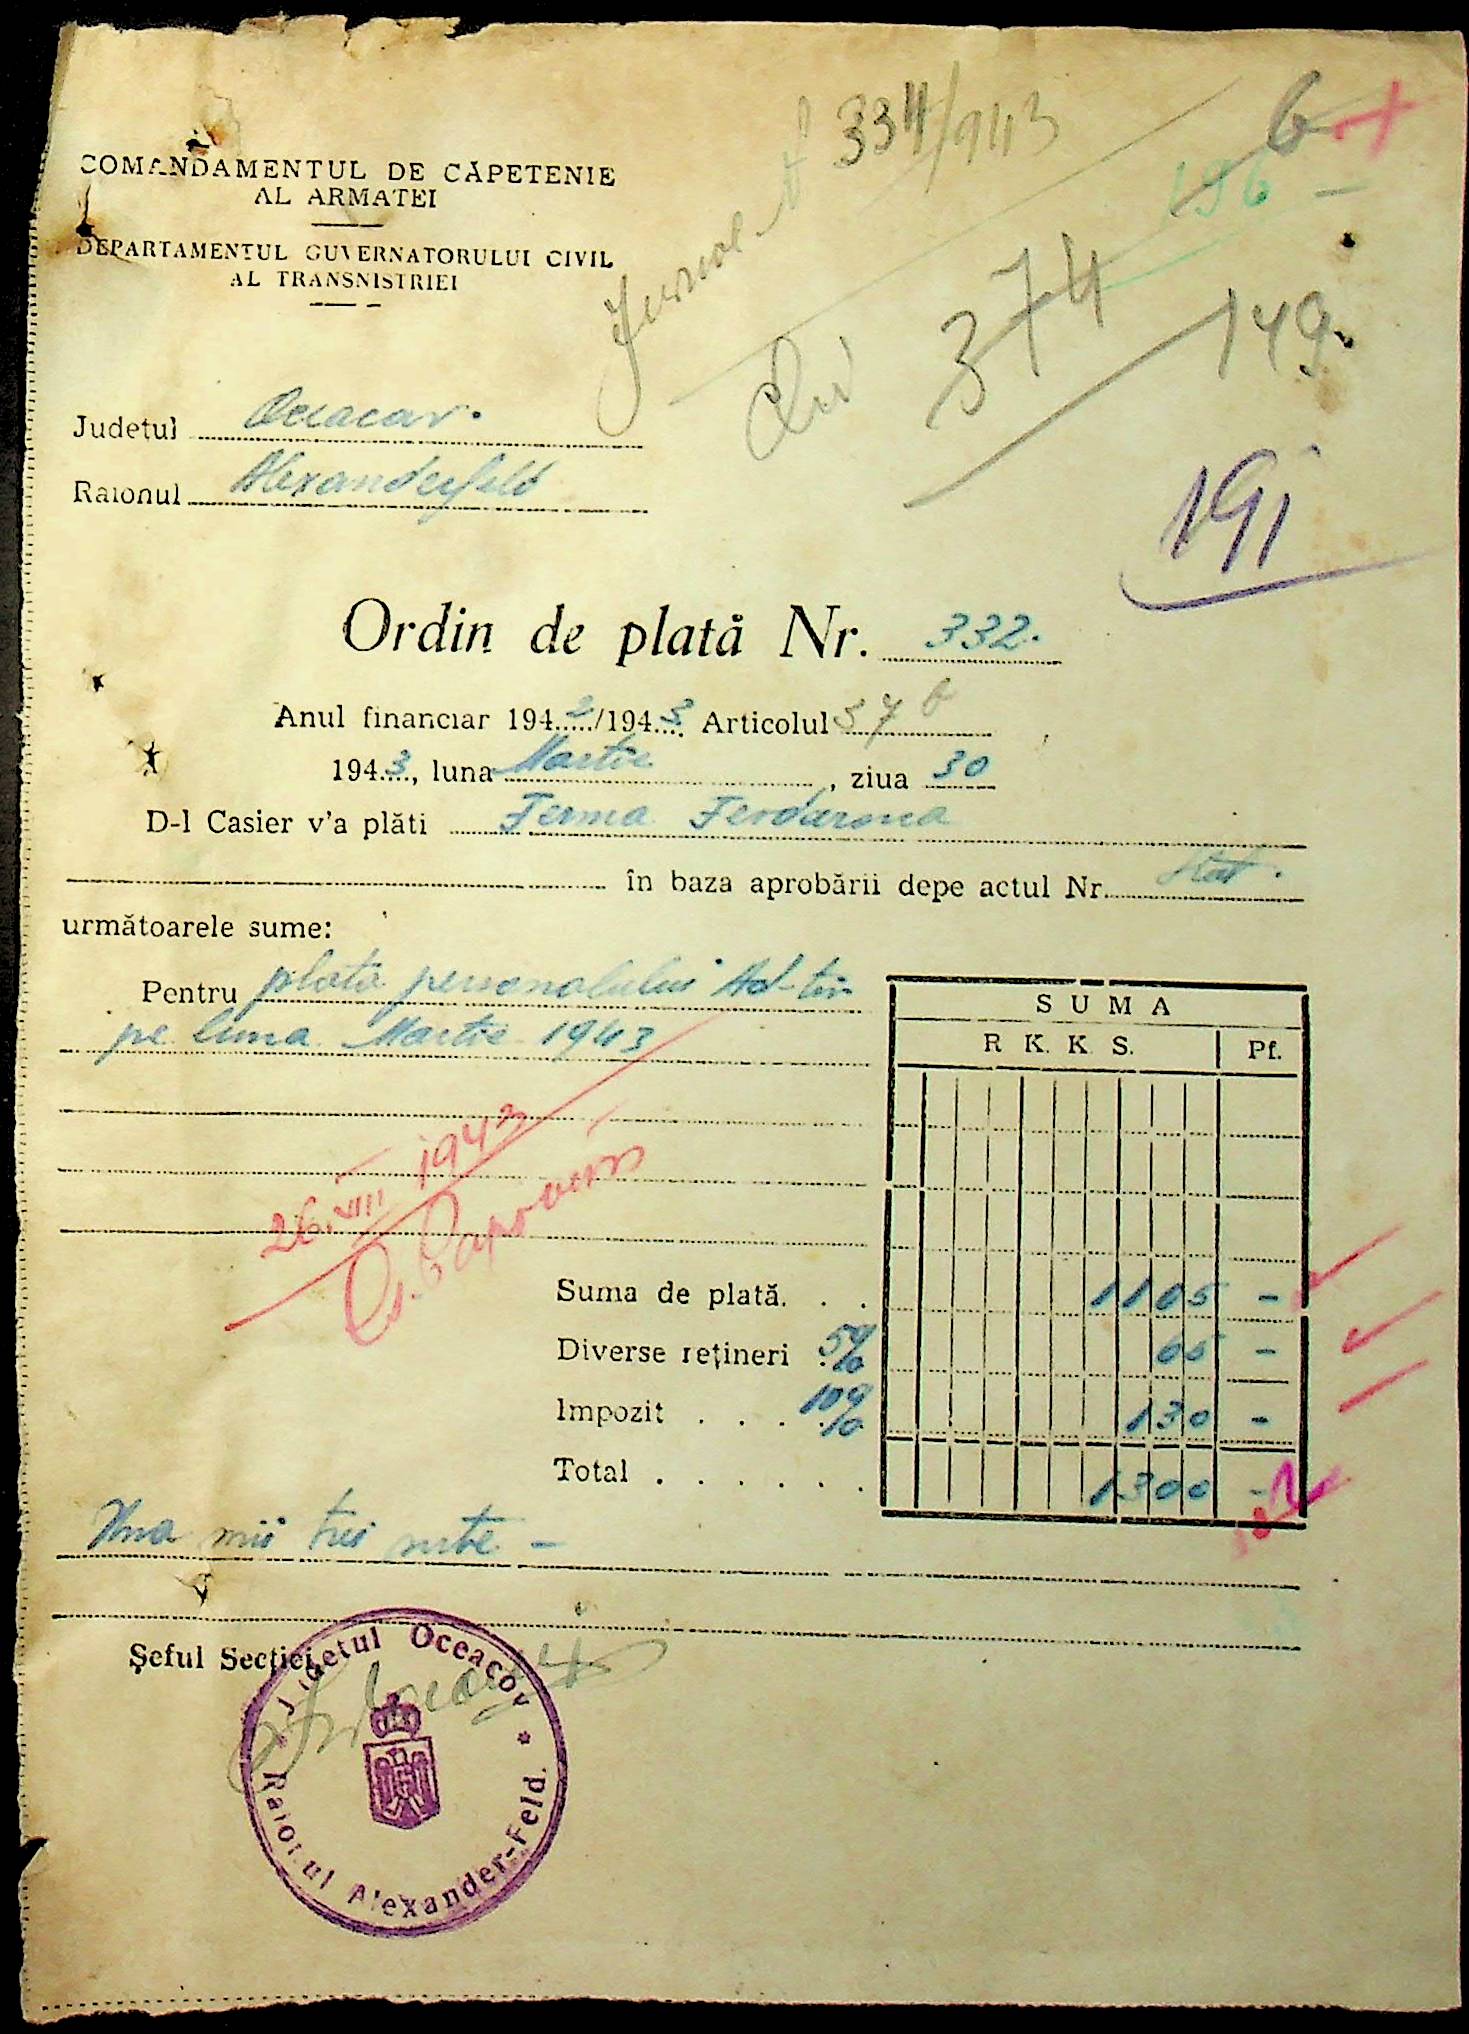 COMANDAMENTUL DE CĂPETENIE
AL ARMATEI
DEPARTAMENTUL GUVERNATORULUI CIVIL
AL TRANSNISTRIEI
334/943
6
196 —
374
149
191
Judetul Oceacov.
Raionul Alexanderfeld
Ordin de plată Nr. 332.
Anul financiar 1942/1943 Articolul 57 b
1943, luna Martie, ziua 30
D-l Casier v'a plăti Ferma
în baza aprobării depe actul Nr. Stat.
următoarele sume:
Pentru plata personalului Ad-tiv
pe luna Martie 1943
SUMA
R K. K S. Pf.
26.VIII 1943
Suma de plată. . . 1105 —
Diverse rețineri 5% 65 —
Impozit . . . 10% 130 —
Total . . . . . . 1300 —
Una mii trei sute —
Șeful Secției
Județul Oceacov * Raionul Alexander-Feld. *